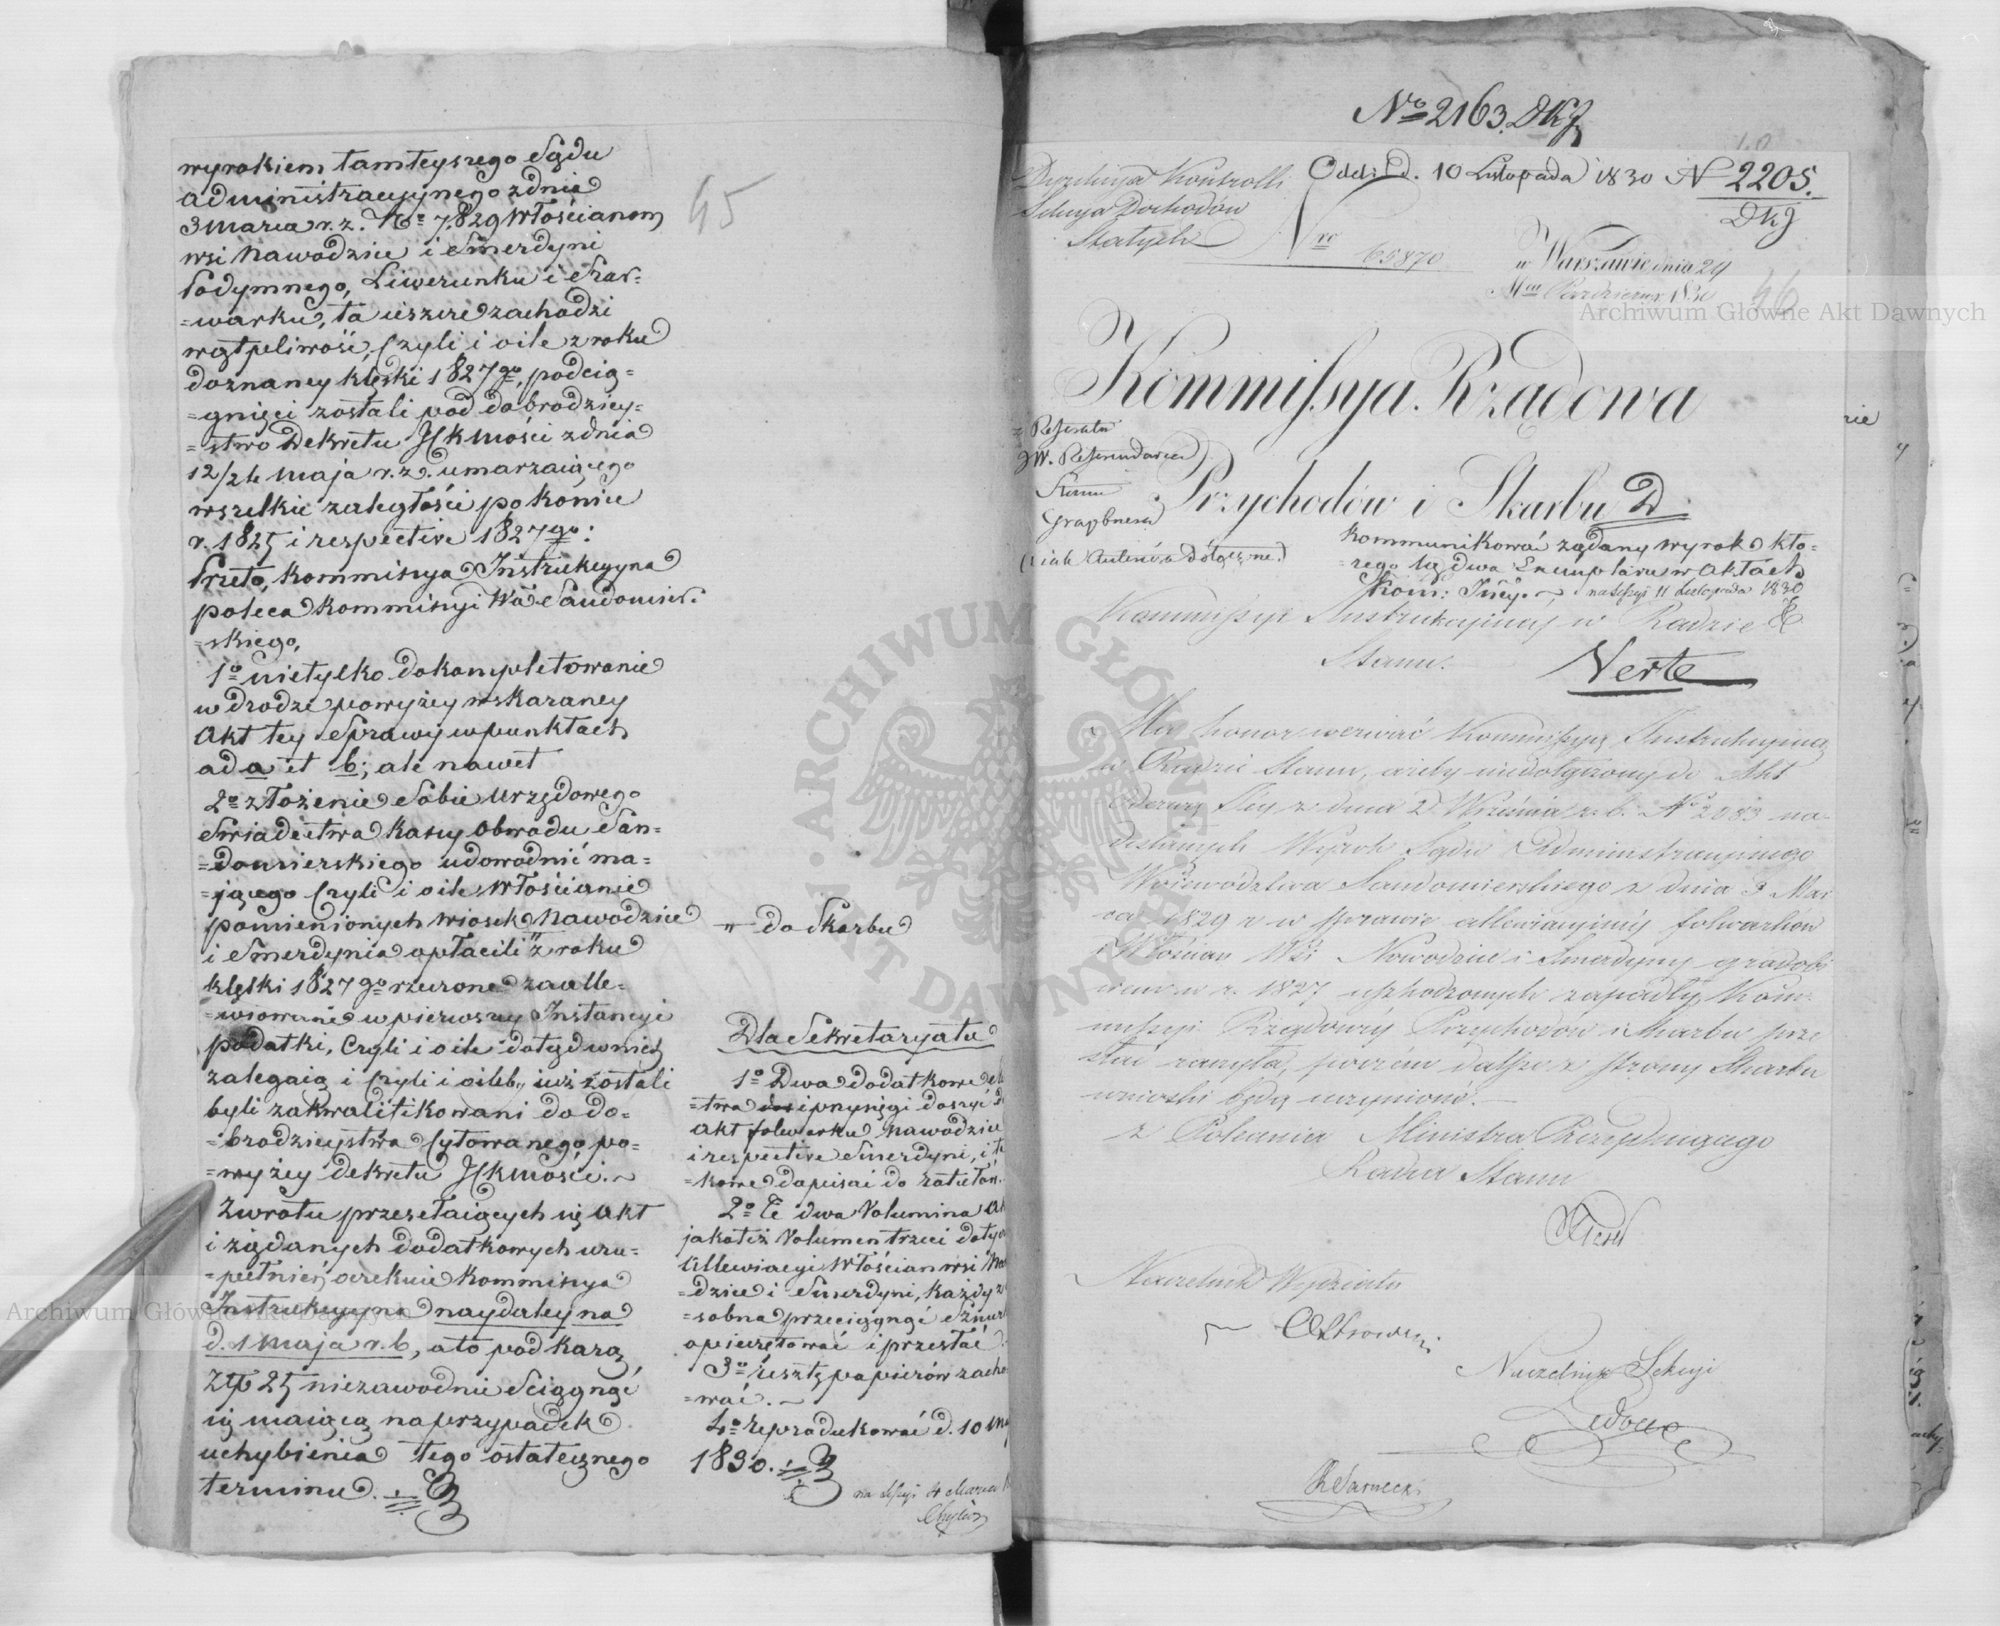 wyrokiem tamteyszego Sądu
Administracyjnego z dnia
3 Marca r. z. No 7,829 Włościanom
wsi Nawodzice i Smerdyni
Podymnego, Liwerunku i Szar-
=warku, ta ieszcze zachodzi
wątpliwość, czyli i o ile z roku
doznaney klęski 1827go, podcią-
=gnięci zostali pod dobrodziey-
=stwo Dekretu JCKMości z dnia
12/24 Maja r. z. umarzaiącego
wszelkie zaległości po koniec
r. 1825 i respective 1827go:
Przeto, Kommissya Instrukcyyna
poleca Kommissyi Wa Sandomier-
=skiego,
1o nietylko dokompletowanie
w drodze powyżey wskazaney
Akt tey Sprawy w punktach
ad a et b; ale nawet
2o złożenie Sobie urzędowego
Swiadectwa Kassy Obwodu San-
=domierskiego udowodnić ma-
=jącego czyli i o ile Włościanie
pomienionych wiosek Nawodzice
i Smerdynia opłacili " z roku
klęski 1827go rzeczone zaalle-
=wiowane w pierwszey Instancyi
podatki, czyli i o ile dotąd w nich
zalegaią i czyli i o ileby iuż zostali
byli zakwalifikowani do do-
=brodzieystwa cytowanego, po-
=wyżey dekretu JCKMości. ~
Zwrotu przesełaiących się Akt
i żądanych dodatkowych uzu-
=pełnień, oczekuie Kommissya
Instrukcyyna naydaley na
d. 1 Maja r. b., a to pod karą
Złp 25 niezawodnie Sciągnąć
się maiącą na przypadek
uchybienia tego ostatecznego
terminu.
45
" do Skarbu
Dla Sekretaryatu
1o Dwa dodatkowe
=twa i pnynięgi doszyć
Akt folwarku Nawodzice
i respective Smerdyni, i
=kowe dopisać do
2o Te dwa Volumina
jakoteż Volumen trzeci doty
Allewiacyi Włościan wsi Na
=dzice i Smerdyni, każdy z
=sobna przeciągnąć Sznur
opieczętować i przesłać
3o resztę papierów zacho
=wać. ~
4o Reprodukować d. 10 Ma
1830.
na Sessyi 4 Marca
No 2163. DKJ
Dyrekcya Kontrolli
Sekcya Dochodów
Stałych
Odd: d. 10 Listopada 1830 N 2205.
DKJ
Nro 65870
w Warszawie dnia 29
Mca Paździer. 1830
46
Kommissya Rządowa
Przychodów i Skarbu
z Referatu
JW. Referendarza
Stanu
Graybnera
Kommunikować żądany wyrok, kto-
=rego są dwa Exemplarze w Aktach
Kom: Inst. na Sessyi 11 Listopada 1830
Kommissyi Instrukcyjney w Radzie
Stanu.
Verte
Ma honor wezwać Kommissyą Instrukcyjną
w Radzie Stanu, ażeby niedołączony do Akt
Odezwą Jey z dnia 2 Września r. b. No 2083 na-
desłanych Wyrok Sądu Administracyjnego
Województwa Sandomierskiego z dnia 3 Mar-
ca 1829 r w sprawie allewiacyjnej folwarków
i Włościan Wsi Nawodzice i Smerdyny gradobi
ciem w r. 1827 uszkodzonych zapadły, Kom-
missyi Rządowej Przychodów i Skarbu prze
słać raczyła, poczem dalsze z strony Skarbu
wnioski będą uczynione. —
z Polecenia Ministra Prezydującego
Radca Stanu
Naczelnik Wydziału
Naczelnik Sekcyi
Archiwum Główne Akt Dawnych
Archiwum Główne Akt Dawnych
ARCHIWUM GŁÓWNE AKT DAWNYCH